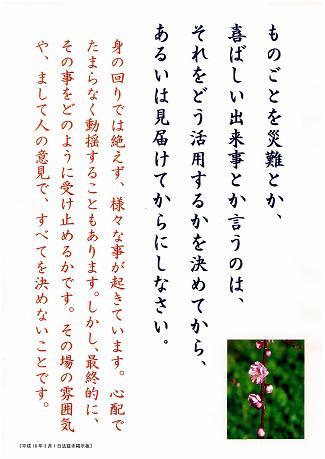 ものごとを災難とか、
喜ばしい出来事とか言うのは、
それをどう活用するかを決めてから、
あるいは見届けてからにしなさい。
身の回りでは絶えず、様々な事が起きています。心配で
たまらなく動揺することもあります。しかし、最終的に、
その事をどのように受け止めるかです。その場の雰囲気
や、まして人の意見で、すべてを決めないことです。
【平成19年3月1日法話寺掲示板】